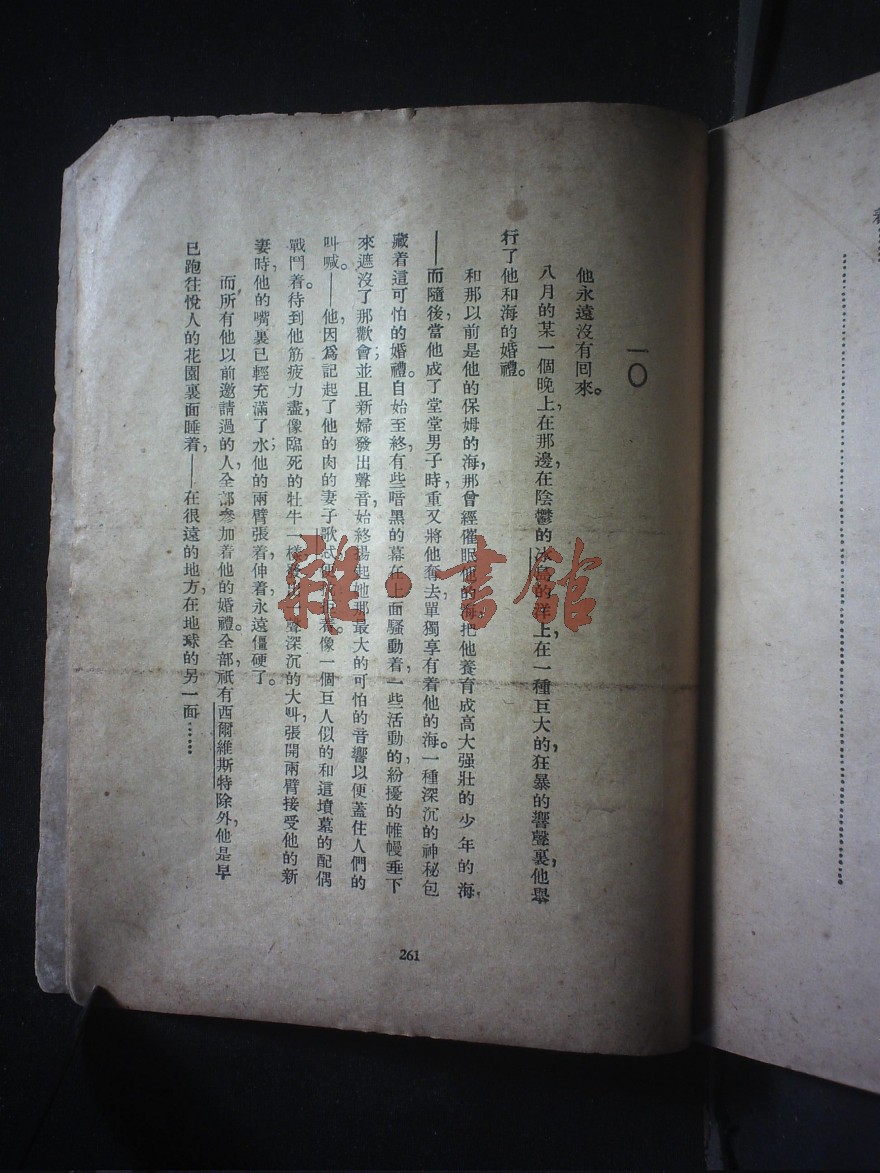 一〇
他永遠沒有囘來。
八月的某一個晚上，在那邊，在陰鬱的冰島的洋上，在一種巨大的，狂暴的響聲裏，他舉
行了他和海的婚禮。
和那以前是他的保姆的海，那曾經催眠他的海，把他養育成高大强壯的少年的海，
——而隨後，當他成了堂堂男子時，重又將他奪去，單獨享有着他的海。一種深沉的神秘包
藏着這可怕的婚禮。自始至終，有些暗黑的幕在上面騷動着，一些活動的紛擾的帷幔垂下
來遮沒了那歡會；並且新婦發出聲音，始終揚起她那最大的可怕的音響以便蓋住人們的
叫喊。——他，因爲記起了他的肉的妻子歌忒，便 着，像一個巨人似的和這墳墓的配偶
戰鬥着。待到他筋疲力盡，像臨死的牡牛一樣發出 聲深沉的大叫，張開兩臂接受他的新
妻時，他的嘴裏已輕充滿了水；他的兩臂張着，伸着，永遠僵硬了。
而所有他以前邀請過的人，全部參加着他的婚禮。全部，祇有西爾維斯特除外，他是早
已跑往悅人的花園裏面睡着，——在很遠的地方，在地球的另一面……
261
雜·書館